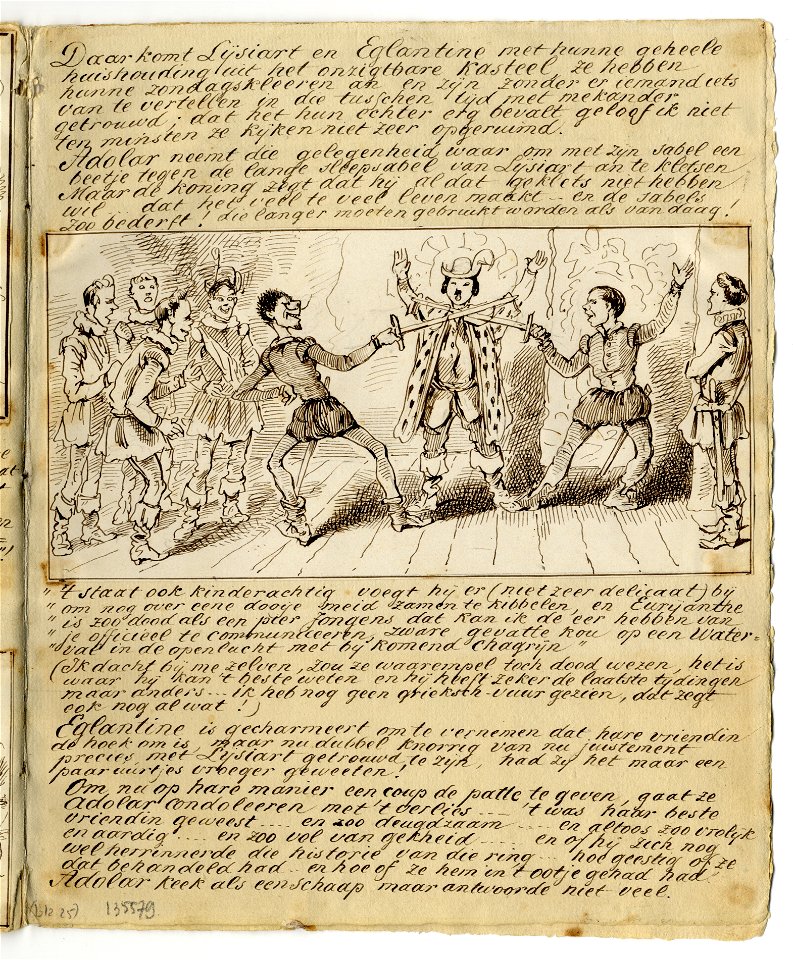 Daar komt Lÿsiart en Eglantine met hunne geheele
huishouding uit het onzigtbare kasteel ze hebben
hunne zondagskleeren an en zijn zonder er iemand iets
van te vertellen in die tusschen tijd met mekander
getrouwd; dat het hun echter erg bevalt geloof ik niet
ten minsten ze kijken niet zeer opgeruimd.
Adolar neemt die gelegenheid waar om met zijn sabel een
beetje tegen de lange sleepsabel van Lÿsiart an te kletsen
Maar de koning zegt dat hij al dat geklets niet hebben
wil dat het veel te veel leven maakt – en de sabels
zoo bederft! die langer moeten gebruikt worden als van daag!
" 't staat ook kinderachtig voegt hij er (niet zeer delicaat) bij
" om nog over eene dooije meid zamen te kibbelen, en Eurÿanthe
" is zoo dood als een pier jongens dat kan ik de eer hebben van
" je officieel te communiceeren, zware gevatte kou op een Water=
" val in de openlucht met bij komend chagrijn"
(Ik dacht bij me zelven, zou ze waarempel toch dood wezen, het is
waar hij kan 't beste weten en hij heeft zeker de laatste tijdingen
maar anders ... ik heb nog geen grieksch-vuur gezien, dat zegt
ook nog al wat!)
Eglantine is gecharmeert om te vernemen dat hare vriendin
de hoek om is, maar nu dubbel knorrig van nu juistement
precies met Lÿsiart getrouwd te zijn, had zij het maar een
paar uurtjes vroeger geweeten!
Om nu op hare manier een coup de patte te geven, gaat ze
Adolar condoleeren met 't verlies ... 't was haar beste
vriendin geweest .... en zoo deugdzaam .... en altoos zoo vrolijk
en aardig .... en zoo vol van gekheid .... en of hij zich nog
wel herrinnerde die historie van die ring ... hoe geestig of ze
dat behandeld had .. en hoe of ze hem in 't ootje gehad had
Adolar keek als een schaap maar antwoorde niet veel.
135579